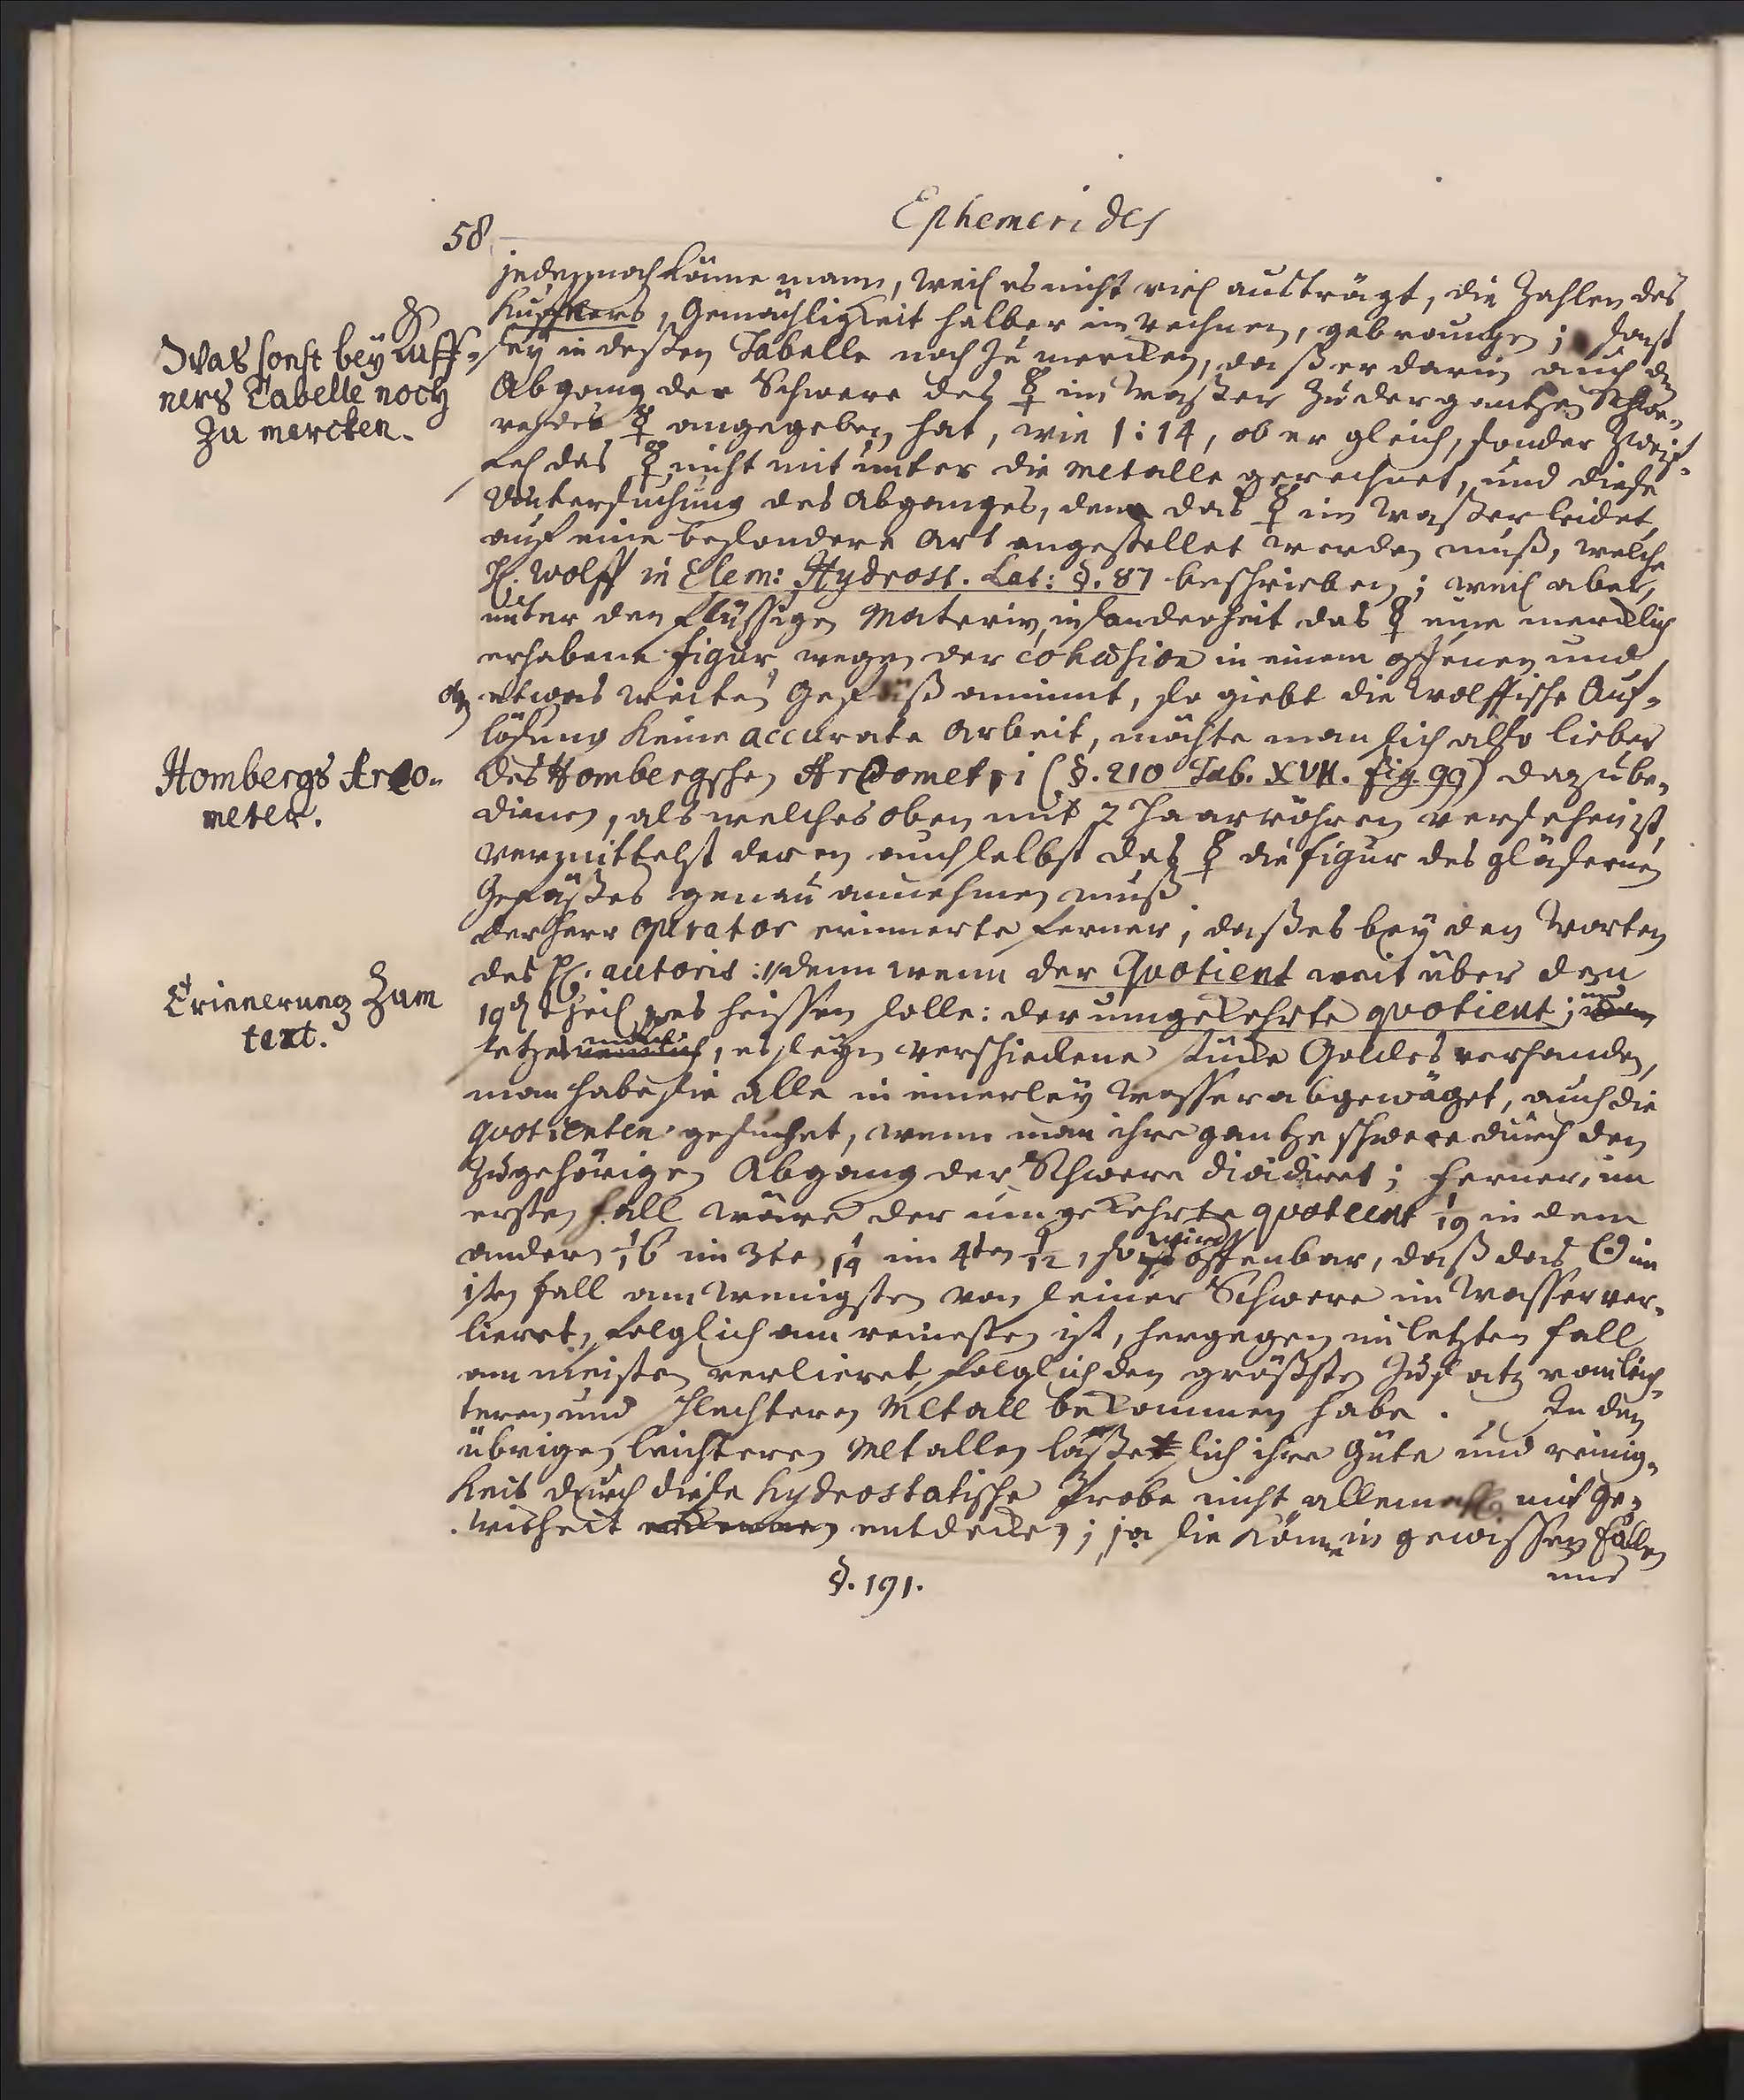 58
Ephemerides
jedennoch könne mann, weil es nicht viel austrägt, die Zahlen des
Kuffners, Gemächligkeit halber im rechnen, gebrauchen; sonst
Was sonst bey Kuff-
ners Tabelle noch
zu mercken.
sey in deßen Tabelle noch zu mercken, daß er darin auch den
Abgang der Schwere des ☿ im Waßer zu der gantzen Schwe-
re des ☿ angegeben hat, wie 1:14, ob er gleich, sonder Zweif-
fel das ☿ nicht mit unter die Metalle gerechnet, und diese
Untersuchung des Abganges, den das ☿ im Waßer leidet,
auf eine besondere Art angestellet werden muß, welche
H. Wolff in Elem: Hydrost. Lat: §. 87 beschrieben; weil aber,
unter den flüssigen Materien, insonderheit das ☿ eine mercklich
erhabene figur wegen der cohæsion in einem offenen und
etwas weiten Gefäß annimt, so giebt die Wolffische Auf-
lösung keine accurate Arbeit, möchte man sich also lieber
Hombergs Aræo-
meter.
des Hombergschen Aræometri (§. 210 Tab. XVII. fig. 99) dazu be-
dienen, als welches oben mit 2 Haarröhren versehen ist,
vermittelst deren auch selbst das ☿ die figur des gläsernen
Gefäßes genau annehmen muß.
Der Herr Operator erinnerte ferner, daß es bey den Worten
Erinnerung zum
text.
des H. autoris: denn wenn der Quotient weit über den
19 Theil, es heissen solle: der umgekehrte quotient; und
setze, es seyn verschiedene stücke Goldes verhanden,
man habe sie alle in einerley Wasser abgewäget, auch die
quotienten gesuchet, wenn man ihre gantze schwere durch den
zugehörigen Abgang der Schwere dividiret; ferner, im
ersten fall wäre der umgekehrte quotient 1/19 in dem
andern 1/16 im 3ten 1/14 im 4ten 1/12, so wird offenbar, daß das ☉ im
1sten fall am wenigsten von seiner Schwere im Wasser ver-
lieret, folglich am reinesten ist, hergegen im letzten fall
am meisten verlieret, folglich den größsten Zusatz vom leich-
teren und schlechtern Metall bekommen habe. In den
übrigen leichteren Metallen läßet sich ihre Güte und reinig-
keit durch diese hydrostatische Probe nicht allemahl mit Ge-
wisheit entdecken; ja sie könne in gewissen fällen
§. 191.
uns